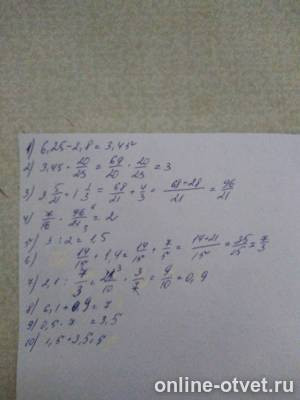 1) 6,25-2,8=3,45
2) 3,45 · 20/23 = 69/20 · 20/23 = 3
3) 3 5/21 + 1 1/3 = 68/21 + 4/3 = 68+28/21 = 96/21
4) 7/16 · 96/21 = 2
5) 3:2=1,5
6) 14/15 + 1,4 = 14/15 + 7/5 = 14+21/15 = 35/15 = 7/3
7) 2,1 : 7/3 = 21/10 · 3/7 = 9/10 = 0,9
8) 6,1+0,9=7
9) 0,5·7=3,5
10) 1,5+3,5=5
online-otvet.ru